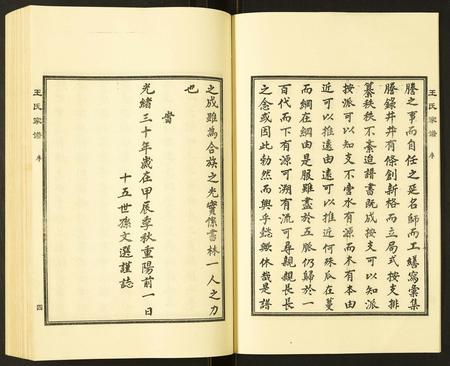 王氏家譜
序
謄之事而自任之延名師而工繕寫彙集
謄錄井井有條創新格而立局式按支排
纂秩秩不紊迨譜書既成按支可以知派
按派可以知支不啻水有源而木有本由
近可以推遠由遠可以推近何殊瓜在蔓
而綱在綱由是服雖盡於五脈仍歸於一
百代而下有源可溯有流可尋親親長長
之念或因此勃然而興乎懿歟休哉是譜
之成雖為合族之光實係書林一人之力
也
當
光緒三十年歲在甲辰季秋重陽前一日
十五世孫文選謹誌
王氏家譜
序
四